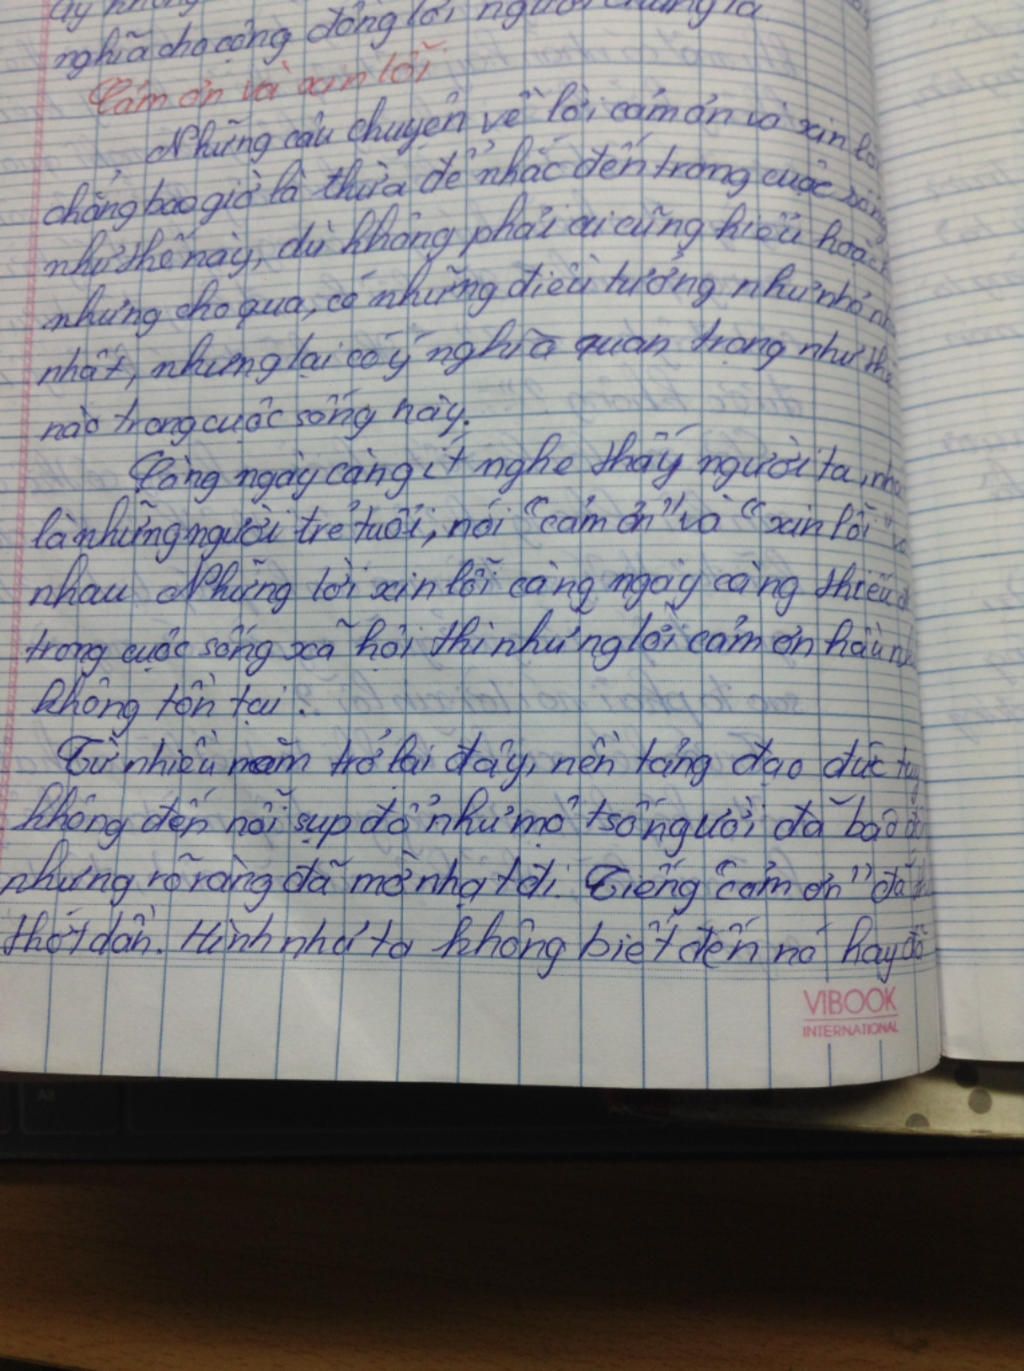 ấy không lời người chúng ta
nghĩa cho cộng đồng
Cảm ơn và xin lỗi
Những câu chuyện về lời cảm ơn và xin
chẳng bao giờ là thừa để nhắc đến trong cuộc sống
như thế này, dù không phải ai cũng hiểu hoặc
nhưng cho qua, có những điều tưởng như nhỏ
nhất, nhưng lại có ý nghĩa quan trọng như thế
nào trong cuộc sống này.
Càng ngày càng ít nghe thấy người ta,
là những người trẻ tuổi, nói "cảm ơn" và "xin lỗi"
nhau Những lời xin lỗi càng ngày càng thiếu
trong cuộc sống xã hội thì những lời cảm ơn hầu
không tồn tại.
Từ nhiều năm trở lại đây, nền tảng đạo đức tuy
không đến nỗi sụp đổ như một số người đã báo
nhưng rõ ràng đã mờ nhạt đi. Tiếng "cảm ơn" đã
thốt dần. Hình như ta không biết đến nó hay đã
VIBOOK
INTERNATIONAL